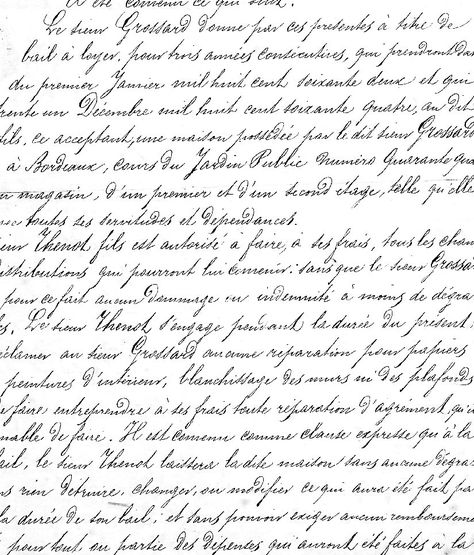 A été convenu ce qui suit.
Le sieur Grossard donne par ces présentes à titre de
bail à loyer, pour trois années consécutives, qui prendront
du premier Janvier mil huit cent soixante deux et qui
trente un Décembre mil huit cent soixante quatre, au dit
fils, ce acceptant, une maison possédée par le dit sieur Grossard
à Bordeaux, cours du Jardin Public Numéro Quarante
magasin, d'un premier et d'un second étage, telle qu'elle
avec toutes ses servitudes et dépendances.
sieur Thenot fils est autorisé à faire, à ses frais, tous les chan
distributions qui pourront lui convenir, sans que le sieur Grossa
pour ce fait aucun dommage ou indemnité à moins de dégra
Le sieur Thenot s'engage pendant la durée du présent
réclamer au sieur Grossard aucune réparation pour papiers
peintures d'intérieur, blanchissage des murs ni des plafonds
faire entreprendre à ses frais toute réparation d'agrément qu'i
nable de faire. Il est convenu comme clause expresse qu'à la
bail, le sieur Thenot laissera la dite maison sans aucune dégra
ns rien détruire, changer, ou modifier ce qui aura été fait pa
la durée de son bail; et sans pouvoir exiger aucun rembourseme
pour tout ou partie des dépenses qui auront été faites à la